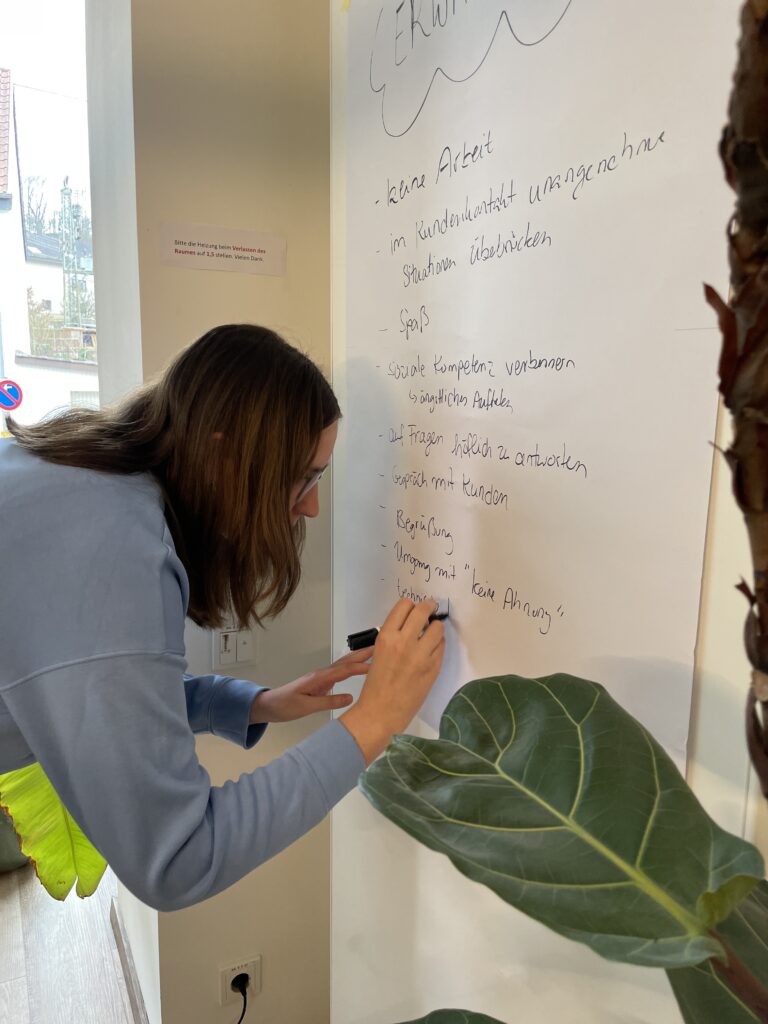 ERWA
- keine Arbeit
- im Kundenkontakt unangenehme
Situationen überbrücken
- Spaß
- soziale Kompetenz verbessern
↳ ängstliches
- auf Fragen höflich zu antworten
- Gespräch mit Kunden
- Begrüßung
- Umgang mit "keine Ahnung"
- techni
Bitte die Heizung beim Verlassen des
Raumes auf 1,5 stellen. Vielen Dank.